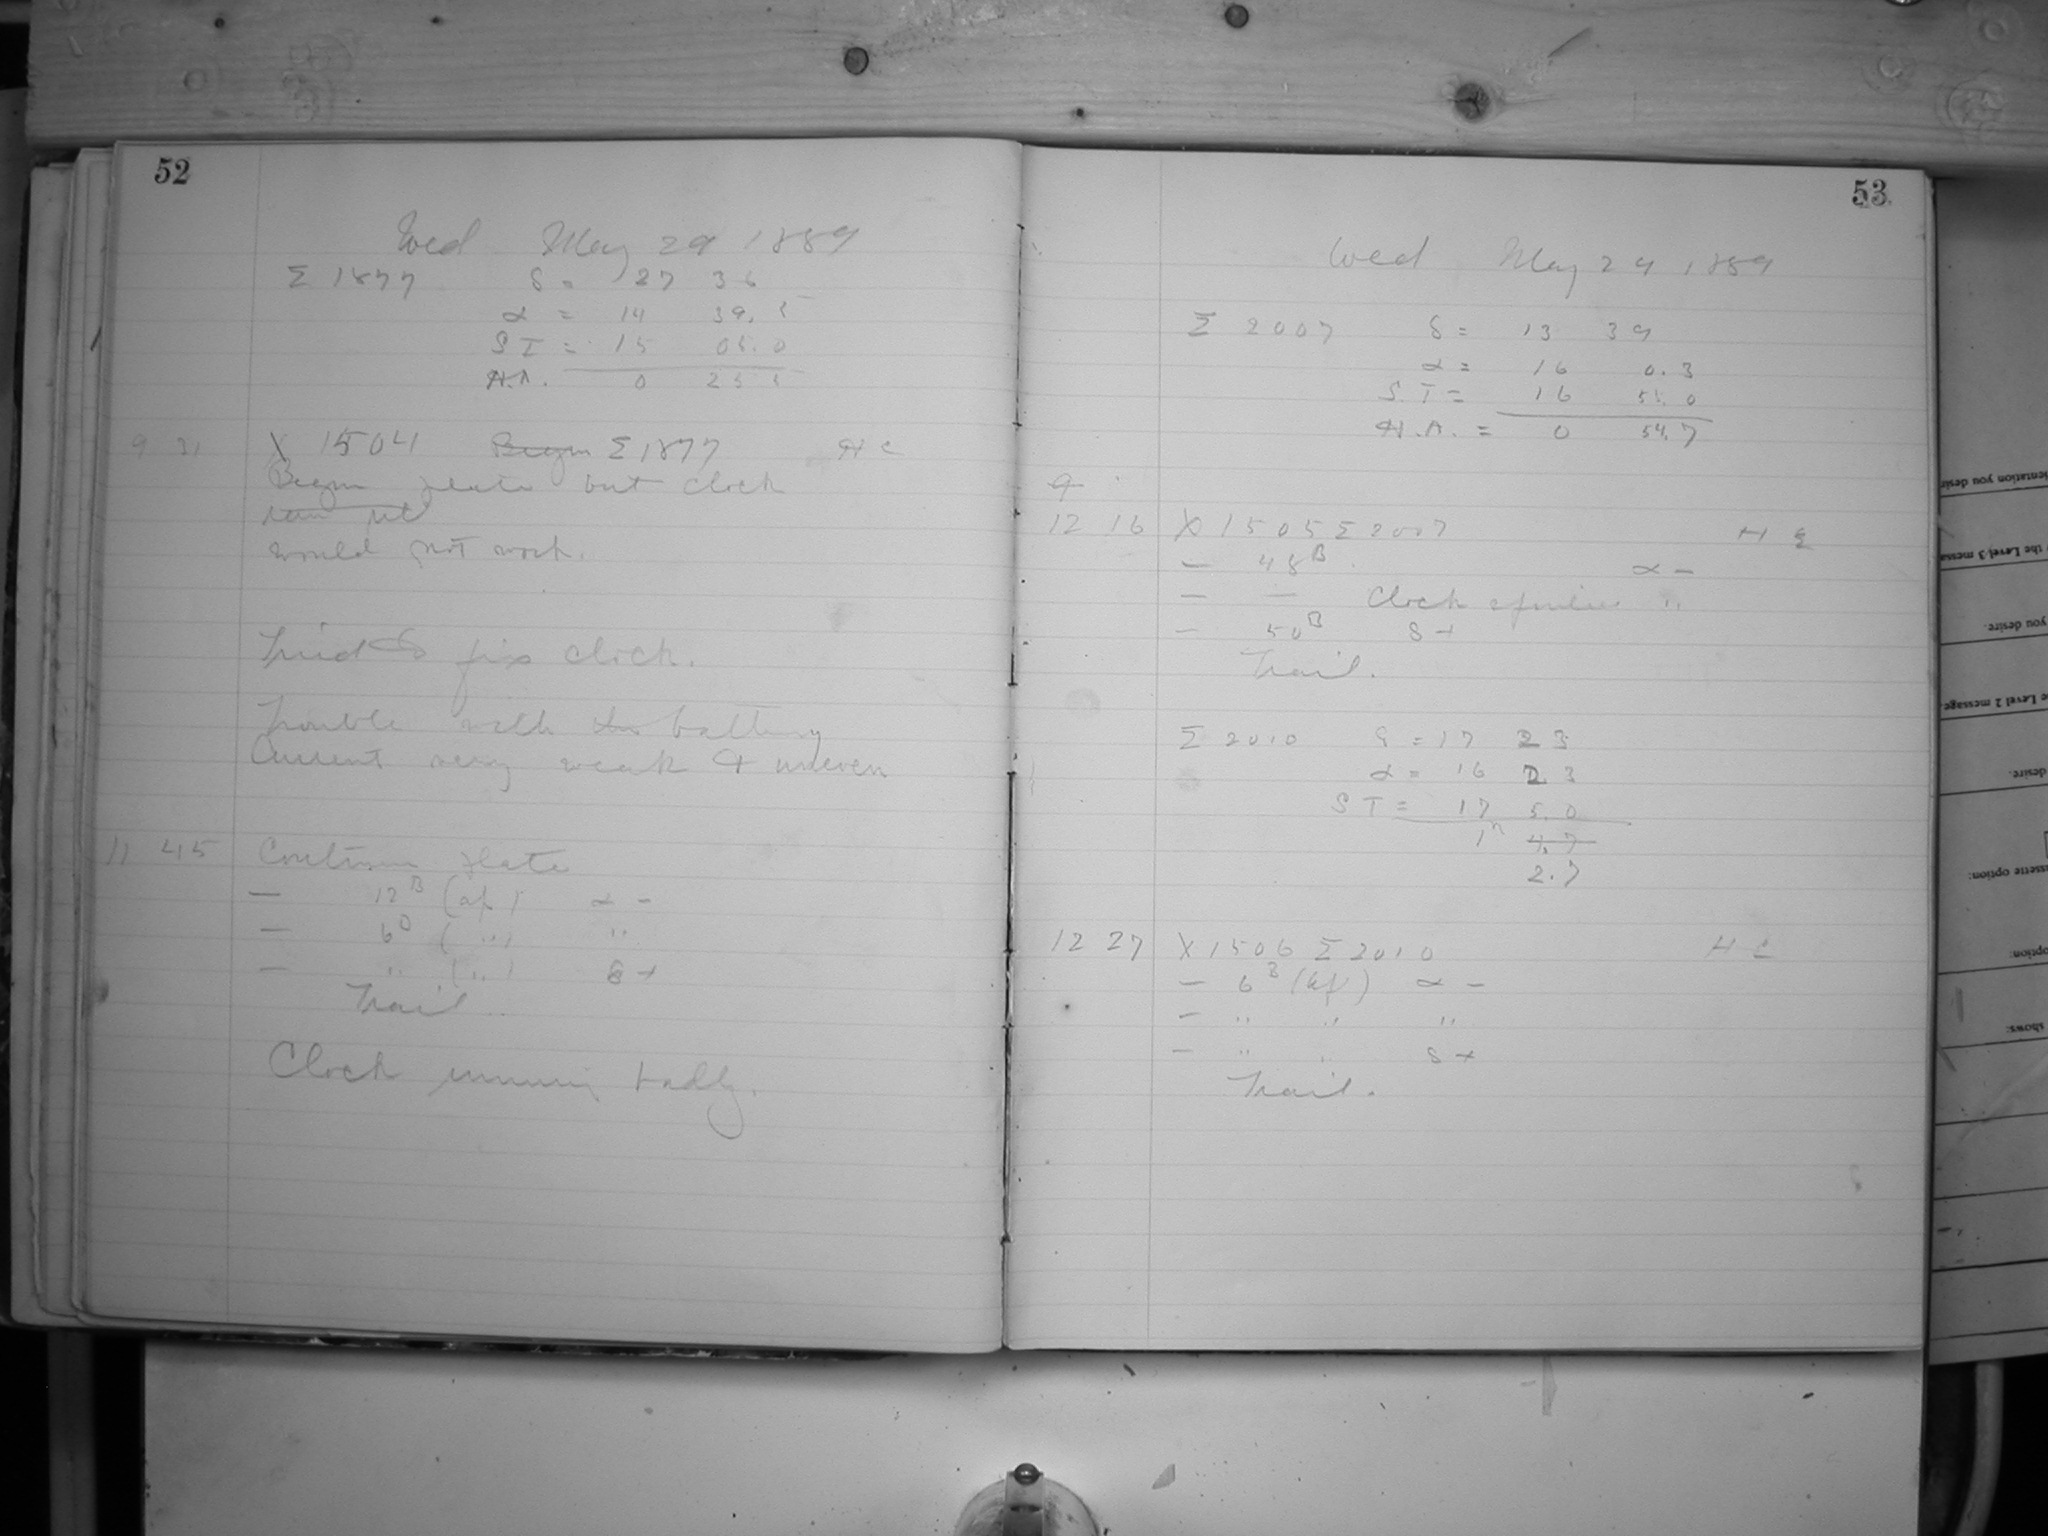 52
Wed May 29 1889
Σ 1877 δ = 27 36
α = 14 39.5
S T = 15 05.0
H.A. 0 25 5
9 31 X 1504 Began Σ 1877 H C
Began plate but clock
would not work.
Tried to fix clock.
Trouble with battery
Current very weak & uneven
11 45 Continue plate
— 12 B (af) α -
— 6 0 ( " ) "
— " ( " ) δ +
Trail
Clock running badly.
53
Wed May 29 1889
Σ 2007 δ = 13 39
α = 16 0.3
S. T = 16 55.0
H.A. = 0 54.7
9
12 16 X 1505 Σ 2007 H
— 48 B α -
— — Clock "
— 50 B δ +
Trail.
Σ 2010 δ = 17 23
α = 16 23
S T = 17 5.0
1 h 4.7
2.7
12 27 X 1506 Σ 2010 H C
— 6 B (af) α -
— " " "
— " " δ +
Trail.
entation you desir
the Level 3 messa
you desire.
e Level 2 message
desire.
ssette option:
option:
shows: